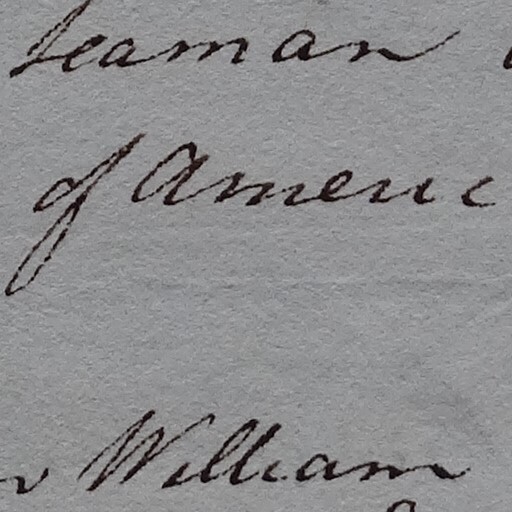 Seaman
of Americ
William